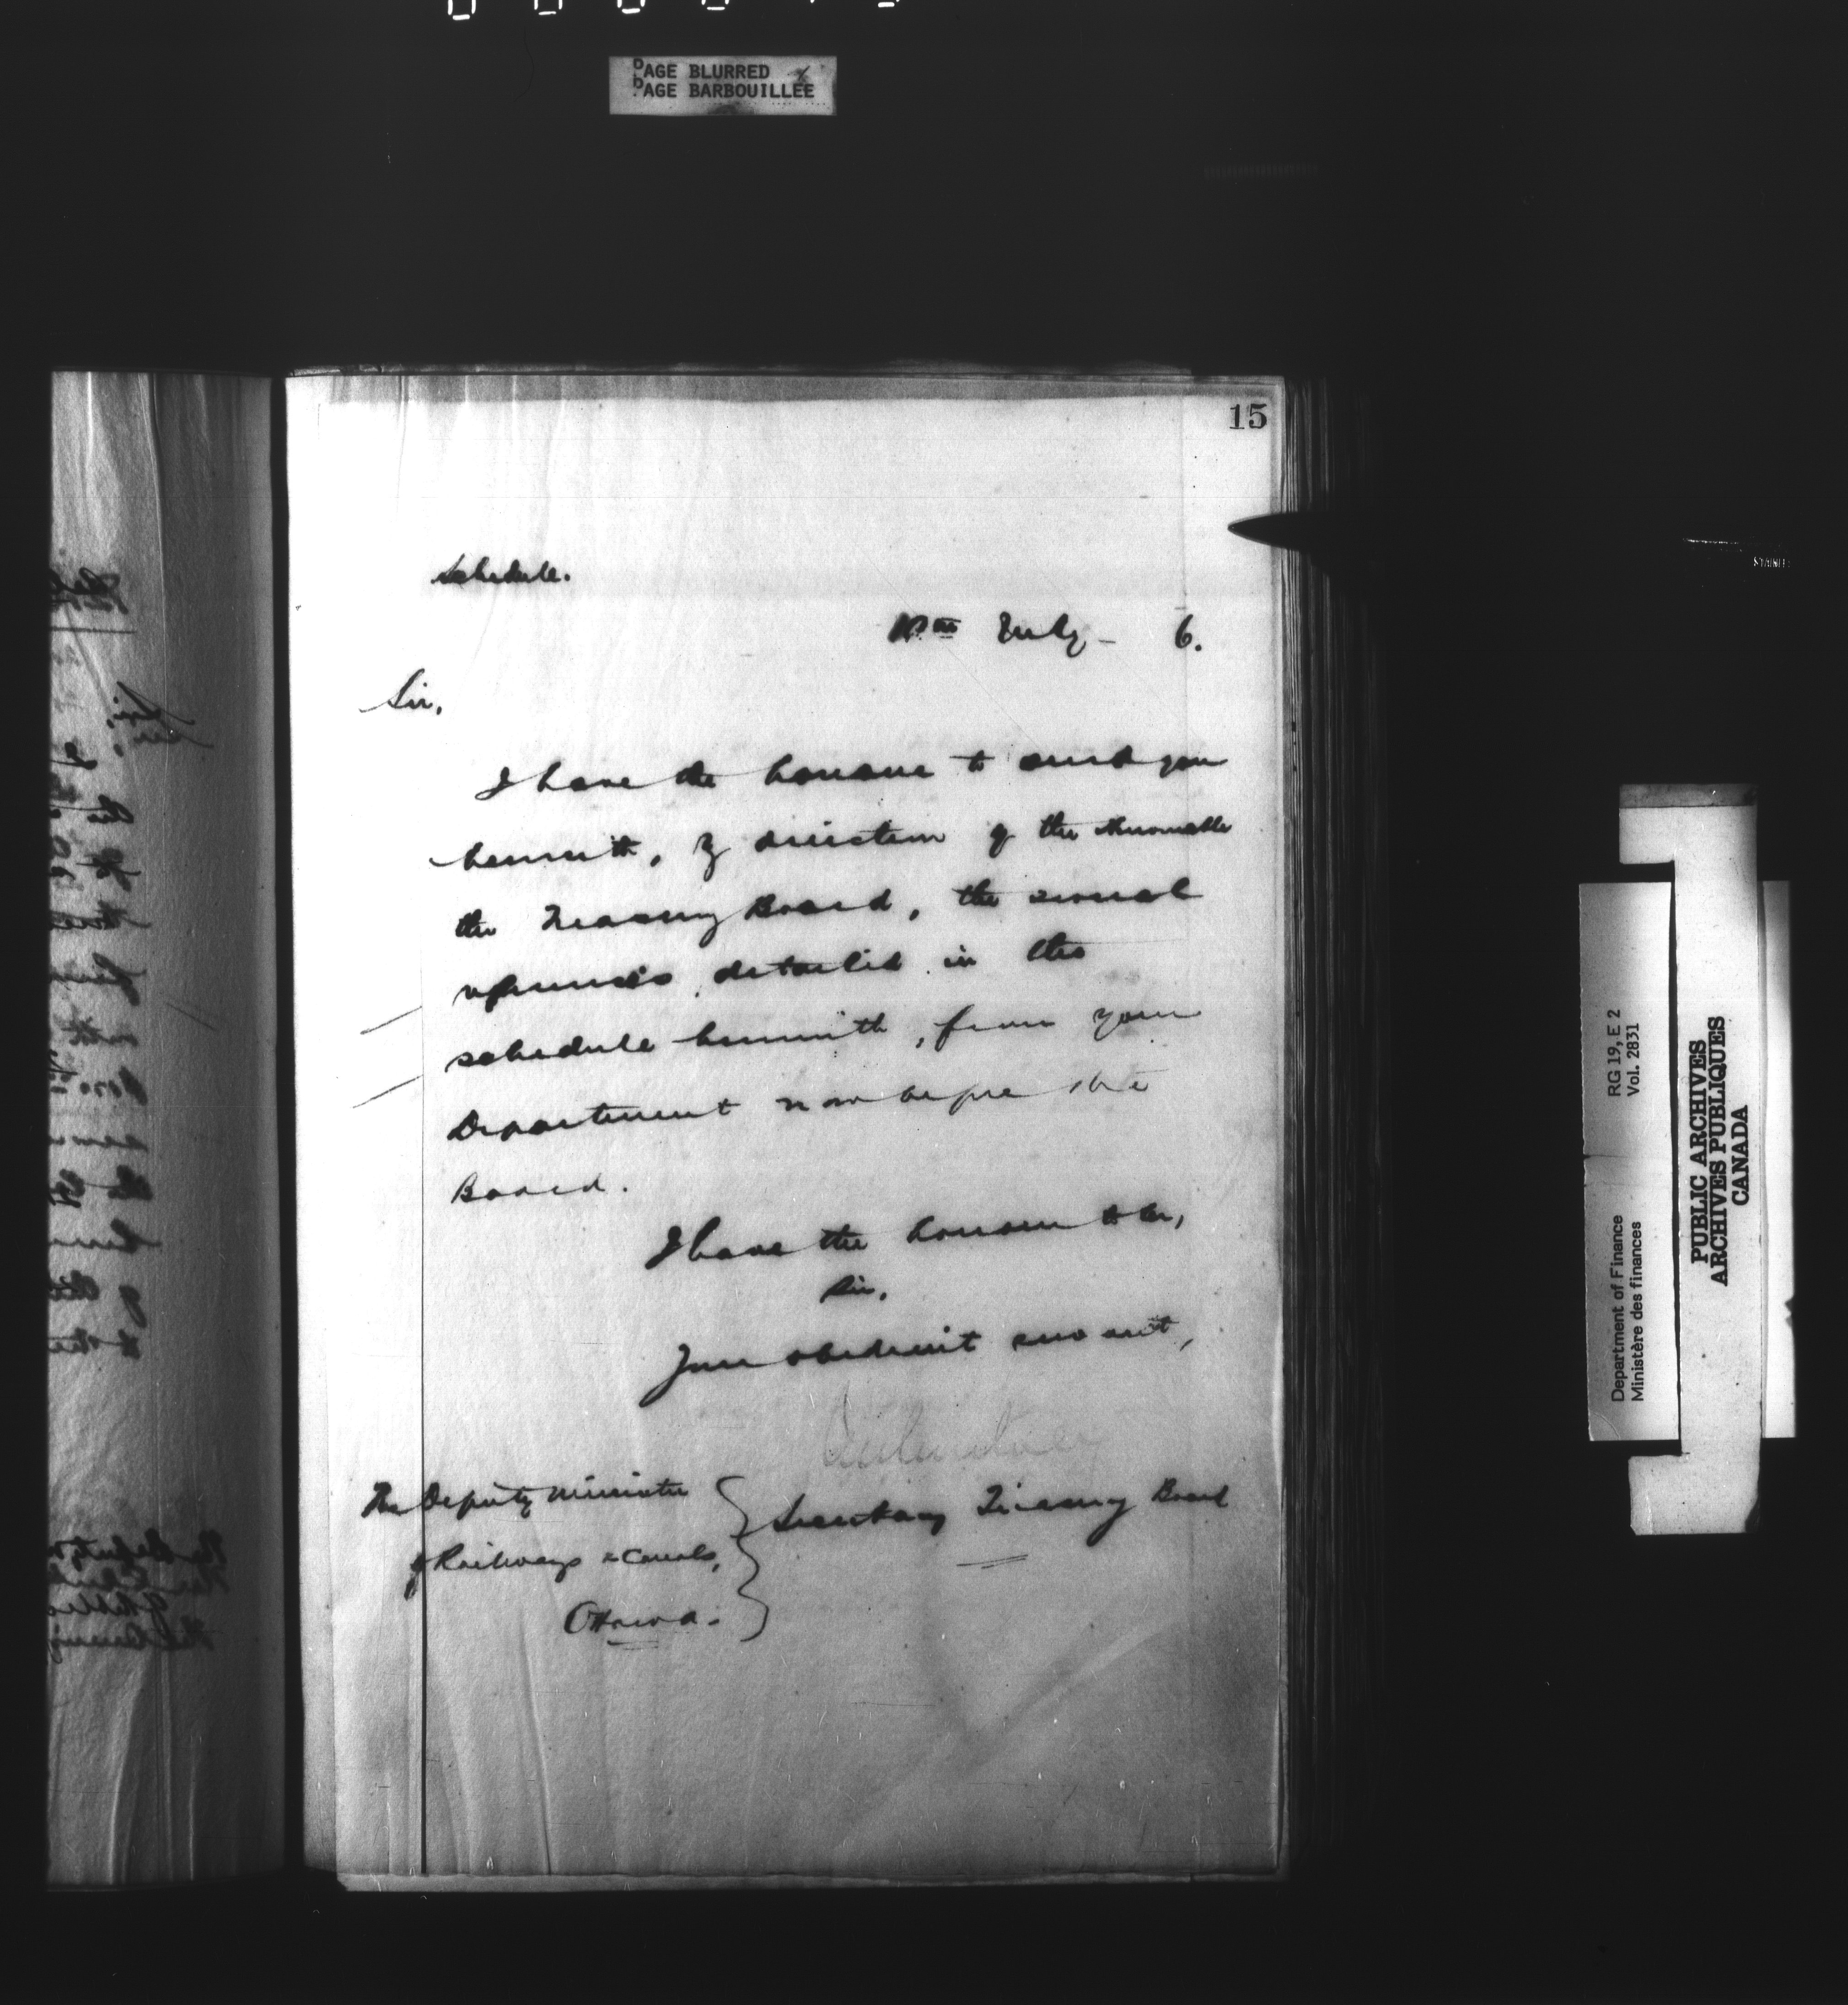 PAGE BLURRED
PAGE BARBOUILLÉE
15
Schedule.
July 6.
Sir,
I have the honour to send you
herewith, by direction of the Honourable
the Treasury Board, the several
references detailed in the
schedule herewith, from your
Department now before the
Board.
I have the honour to be,
Sir,
Your obedient servant,
Secretary Treasury Board
The Deputy Minister
of Railways & Canals,
Ottawa.
Department of Finance RG 19, E 2
Ministère des finances Vol. 2831
PUBLIC ARCHIVES
ARCHIVES PUBLIQUES
CANADA